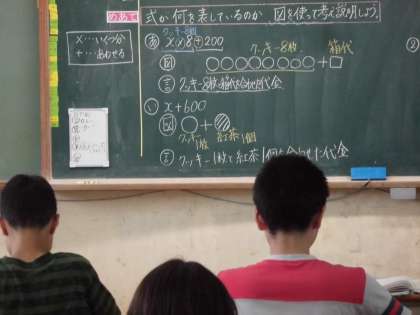 めあて 式が何を表しているのか 図を使って考え説明しよう。
×…いくつ分
＋…あわせる
クッキー8枚
あ x×8＋200
クッキー8枚 箱代
図 ○○○○○○○○＋□
言 クッキー8枚と箱代を合わせた代金
い x+600
図 ○＋
クッキー1枚 紅茶1個
言 クッキー1枚と紅茶1個を合わせた代金
②